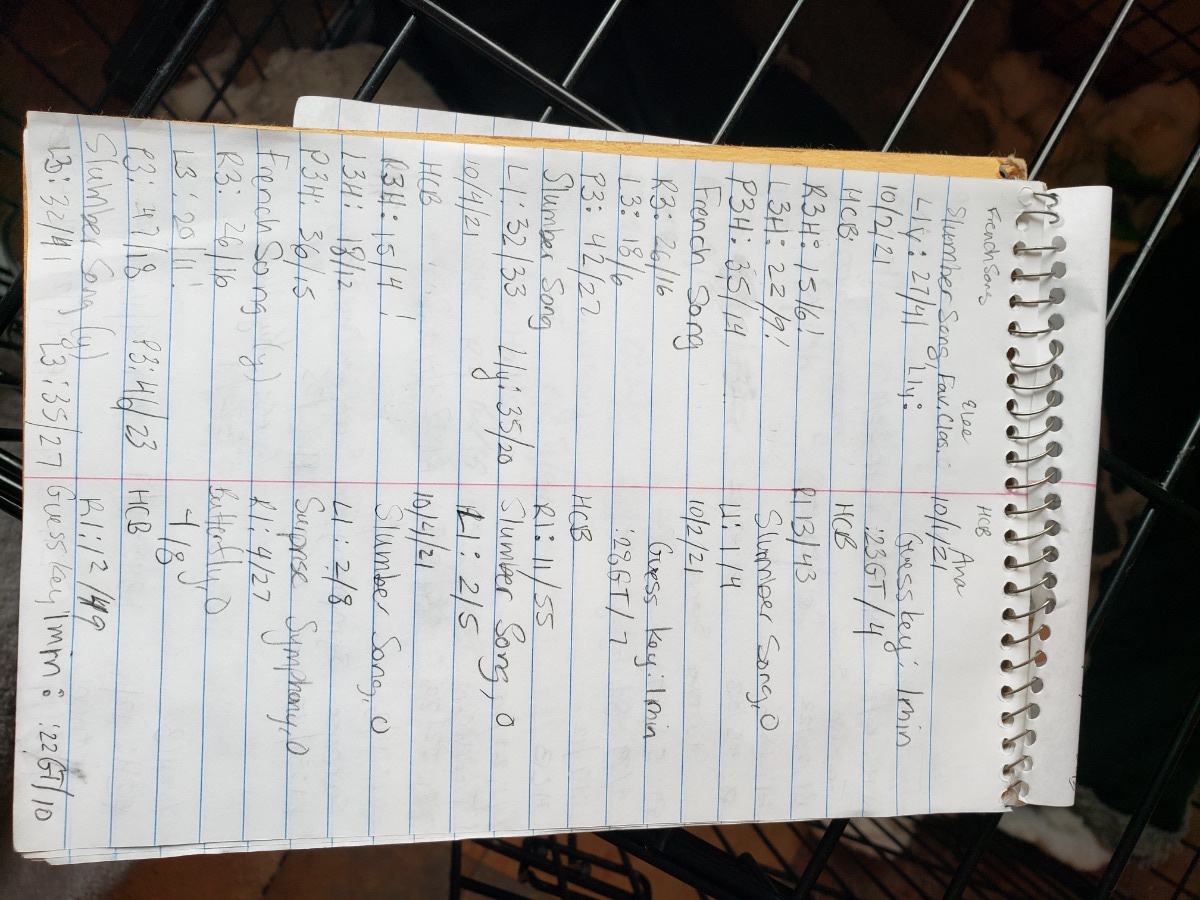 French Song
Elee
Slumber Song, Fav. Clas.
L1y: 27/41 L1y:
10/2/21
HCB:
R3H: 15/6!
L3H: 22/9!
P3H: 35/14
French Song
R3: 26/16
L3: 18/6
P3: 42/27
Slumber Song
L1: 32/33 L1y: 35/20
10/4/21
HCB
R3H: 15/4!
L3H: 18/12
P3H: 36/15
French Song (y)
R3: 26/16
L3: 20/11
P3: 47/18 P3: 46/23
Slumber Song (y)
L3: 32/41 L3: 35/27
HCB
Ana
10/1/21
Guess key: 1min
:23GT/4
HCB
R1 3/43
Slumber Song, 0
L1: 1/4
10/2/21
Guess key: 1min
:23GT/7
HCB
R1: 11/55
Slumber Song, 0
L1: 2/5
10/4/21
Slumber Song, 0
L1: 2/8
Suprise Symphony, 0
R1: 24/27
Butterfly, 0
-1/8
HCB
R1: 12/49
Guess key 1min: :22GT/10